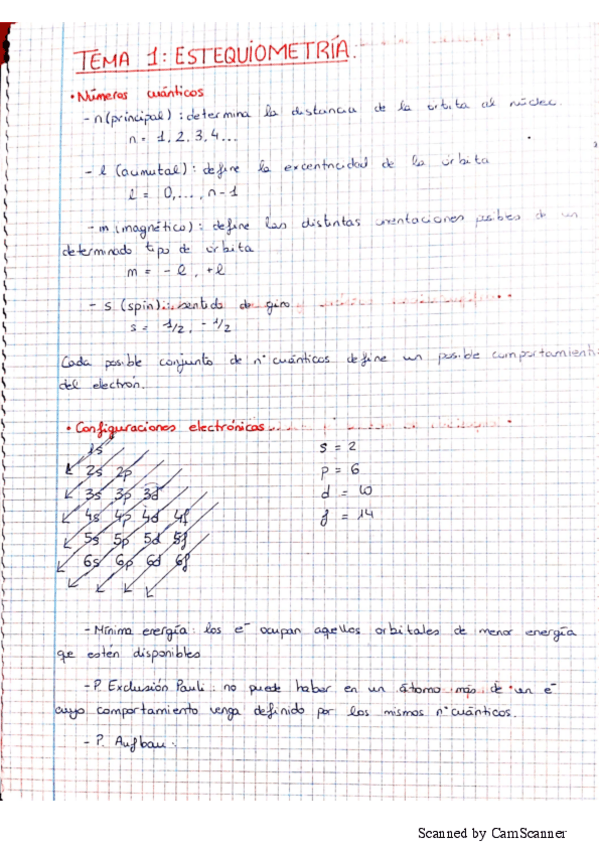 TEMA 1: ESTEQUIOMETRÍA.
• Números cuánticos
- n (principal) : determina la distancia de la órbita al núcleo.
n = 1, 2, 3, 4...
- l (acimutal) : define la excentricidad de la órbita
l = 0,..., n-1
- m (magnético) : define las distintas orientaciones posibles de un
determinado tipo de órbita
m = - l, +l
- s (spin) : sentido de giro
s = 1/2, - 1/2
Cada posible conjunto de nº cuánticos define un posible comportamiento
del electrón.
• Configuraciones electrónicas
1s
2s 2p
3s 3p 3d
4s 4p 4d 4f
5s 5p 5d 5f
6s 6p 6d 6f
s = 2
p = 6
d = 10
f = 14
- Mínima energía: los e⁻ ocupan aquellos orbitales de menor energía
que estén disponibles
- P. Exclusión Pauli: no puede haber en un átomo más de un e⁻
cuyo comportamiento venga definido por los mismos nº cuánticos.
- P. Aufbau:
Scanned by CamScanner